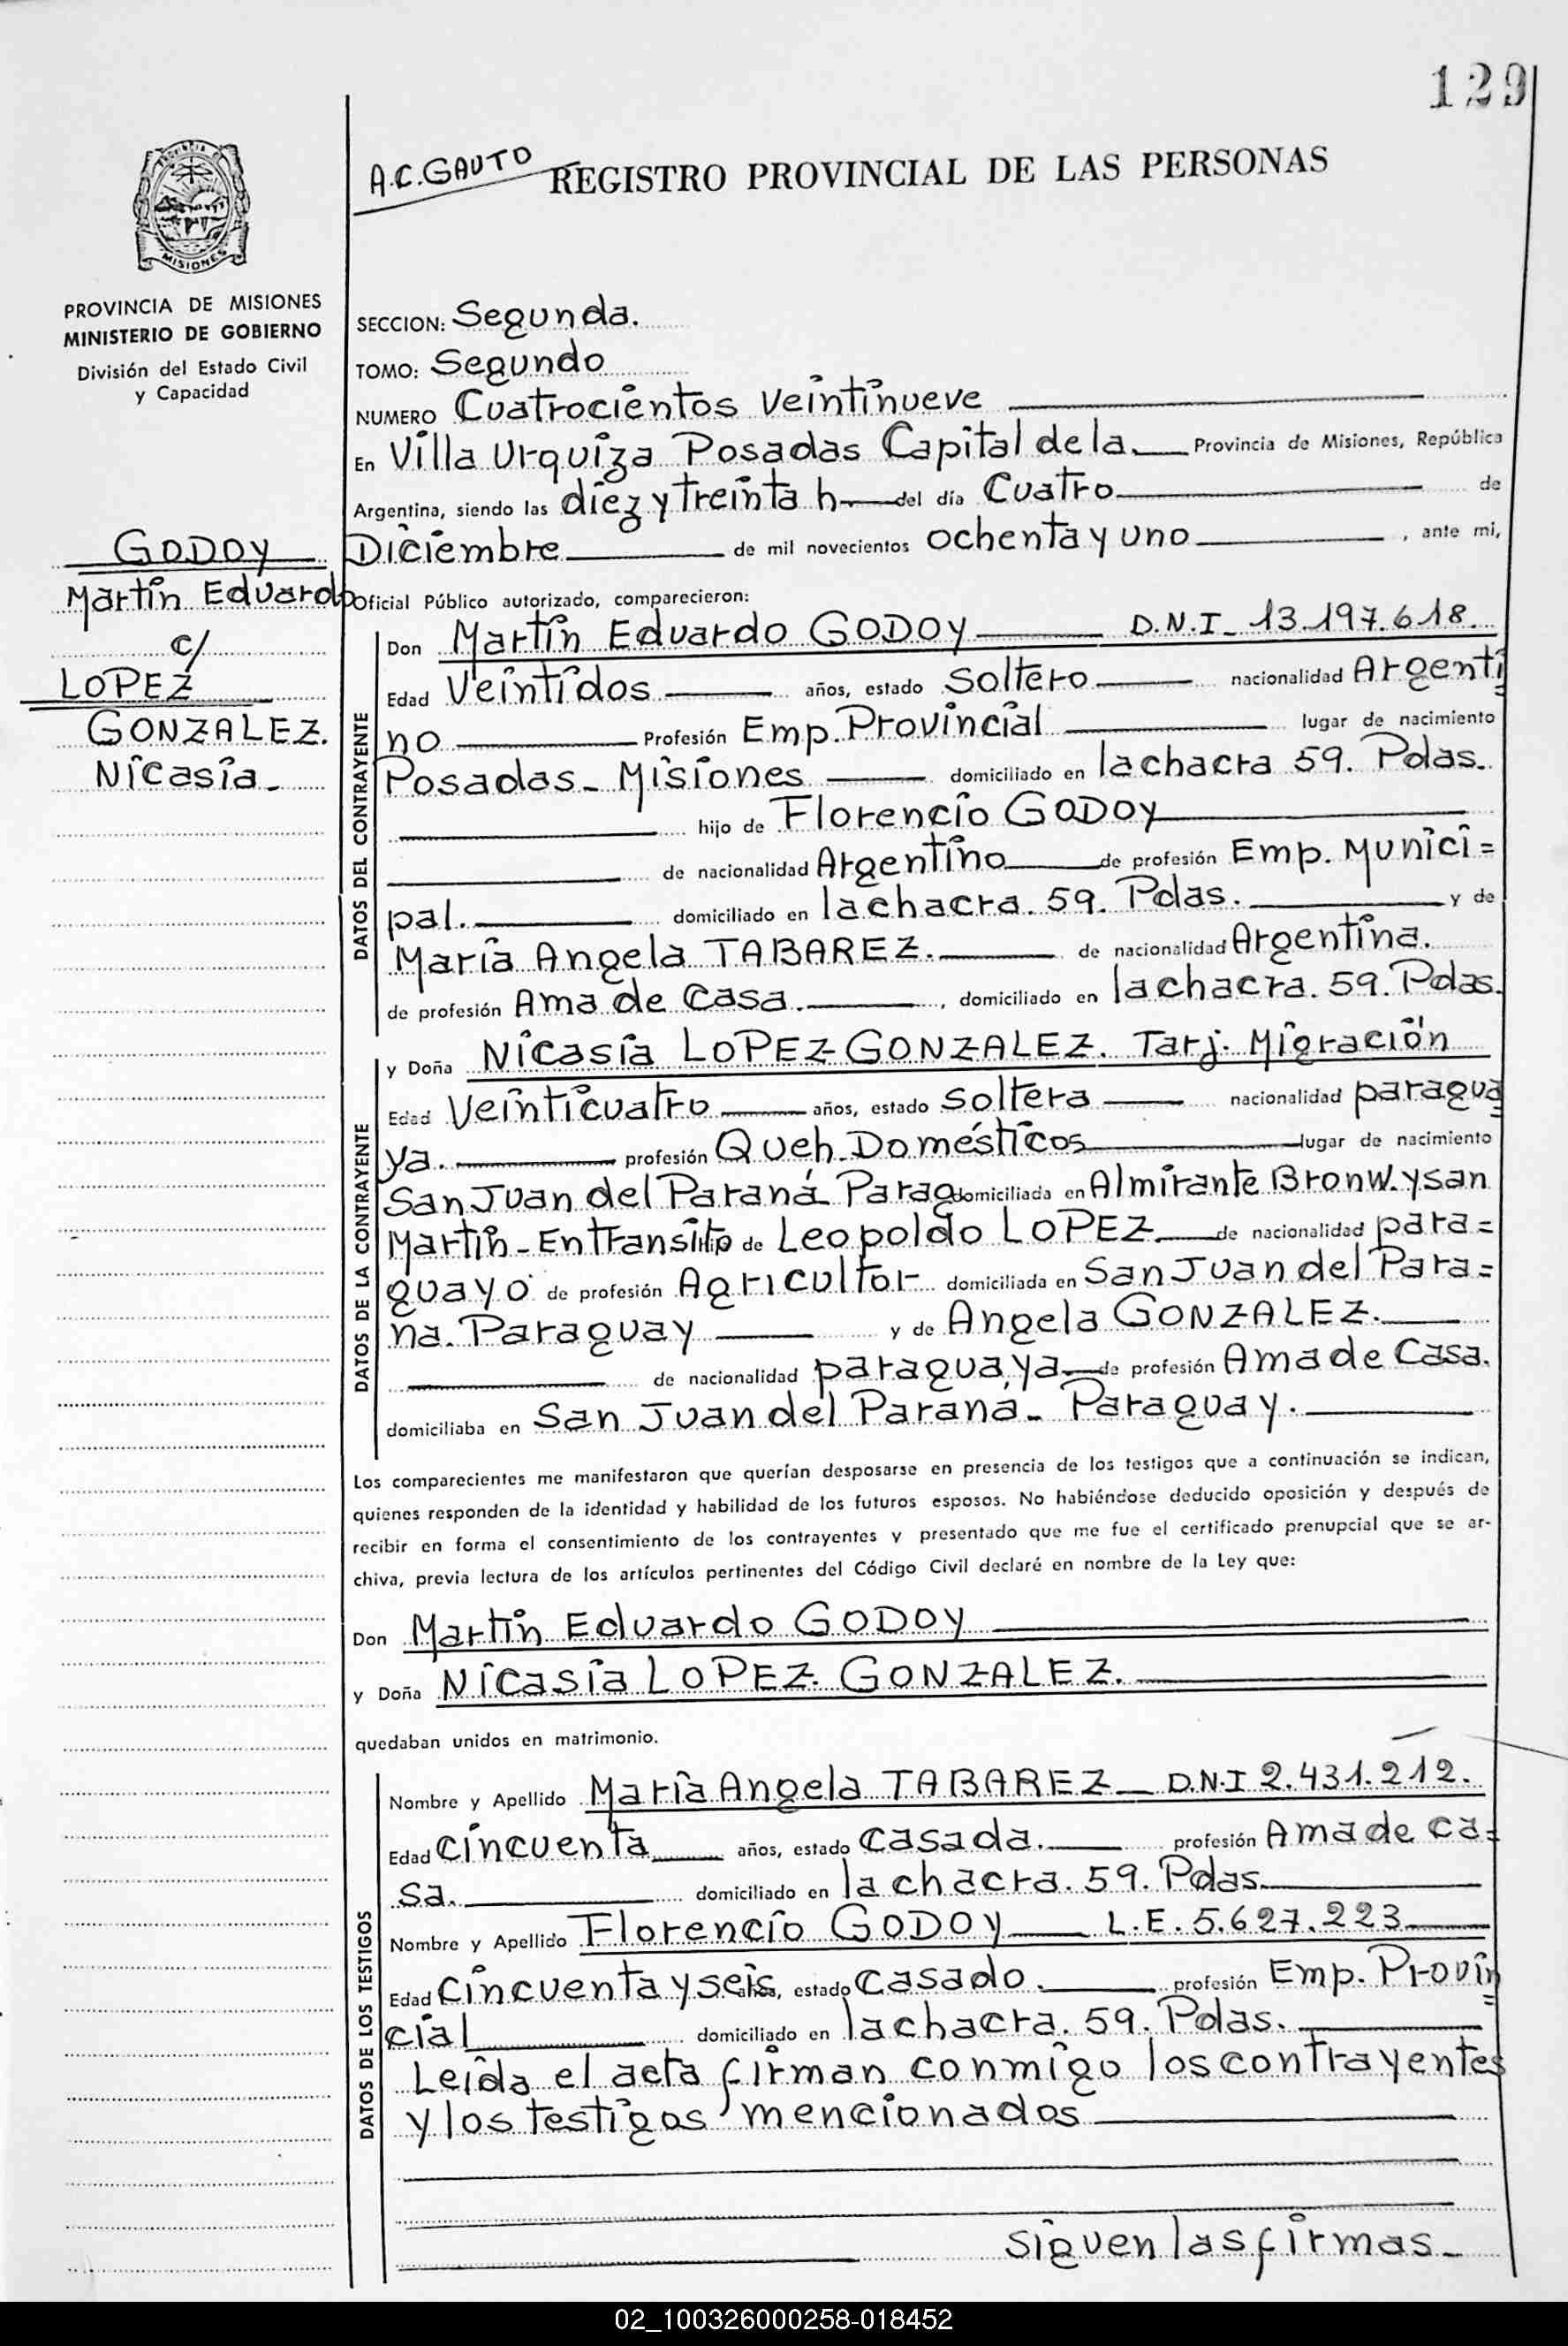 129
A.C. GAUTO
REGISTRO PROVINCIAL DE LAS PERSONAS
MISIONES
PROVINCIA DE MISIONES
MINISTERIO DE GOBIERNO
División del Estado Civil
y Capacidad
GODOY
Martín Eduardo
c/
LOPEZ
GONZALEZ.
Nicasia.
SECCION: Segunda.
TOMO: Segundo
NUMERO Cuatrocientos Veintinueve
En Villa Urquiza Posadas Capital de la Provincia de Misiones, República
Argentina, siendo las diez y treinta h del día Cuatro de
Diciembre de mil novecientos ochenta y uno, ante mi,
Oficial Público autorizado, comparecieron:
DATOS DEL CONTRAYENTE
Don Martín Eduardo GODOY D.N.I. 13.197.618.
Edad Veintidos años, estado Soltero nacionalidad Argenti=
no Profesión Emp. Provincial lugar de nacimiento
Posadas- Misiones domiciliado en la chacra 59. Pdas.
hijo de Florencio GODOY
de nacionalidad Argentino de profesión Emp. Munici=
pal. domiciliado en la chacra. 59. Pdas. y de
María Angela TABAREZ. de nacionalidad Argentina.
de profesión Ama de Casa., domiciliado en la chacra. 59. Pdas.
DATOS DE LA CONTRAYENTE
y Doña Nicasia LOPEZ GONZALEZ. Tarj. Migración
Edad Veinticuatro años, estado Soltera nacionalidad paragua=
ya. profesión Queh. Domésticos lugar de nacimiento
San Juan del Paraná Parag domiciliada en Almirante Bronw. y san
Martin- En transito hija de Leopoldo LOPEZ. de nacionalidad para=
guayo de profesión Agricultor domiciliada en San Juan del Para=
na. Paraguay y de Angela GONZALEZ.
de nacionalidad paraguaya de profesión Ama de Casa.
domiciliaba en San Juan del Paraná- Paraguay.
Los comparecientes me manifestaron que querían desposarse en presencia de los testigos que a continuación se indican,
quienes responden de la identidad y habilidad de los futuros esposos. No habiéndose deducido oposición y después de
recibir en forma el consentimiento de los contrayentes y presentado que me fue el certificado prenupcial que se ar-
chiva, previa lectura de los artículos pertinentes del Código Civil declaré en nombre de la Ley que:
Don Martín Eduardo GODOY
y Doña Nicasia LOPEZ. GONZALEZ.
quedaban unidos en matrimonio.
DATOS DE LOS TESTIGOS
Nombre y Apellido María Angela TABAREZ D.N.I 2.431.212.
Edad Cincuenta años, estado Casada. profesión Ama de ca=
sa. domiciliado en la chacra. 59. Pdas.
Nombre y Apellido Florencio GODOY L.E. 5.627.223
Edad Cincuenta y seis años, estado Casado. profesión Emp. Provin=
cial domiciliado en la chacra. 59. Pdas.
Leida el acta firman conmigo los contrayentes
y los testigos mencionados
siguen las firmas-
02_100326000258-018452